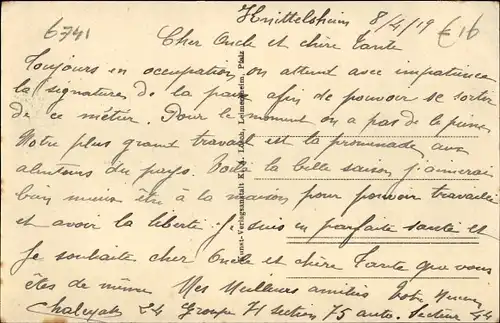 6741
Knittelsheim 8/4/19
€16
Cher Oncle et chère Tante
Toujours en occupation, on attend avec impatience
la signature de la paix afin de pouvoir se sortir
de ce métier. Pour le moment on a pas de peine
Notre plus grand travail est la promenade aux
alentours du pays. Voilà la belle saison j'aimerai
bien mieux être à la maison pour pouvoir travailler
et avoir la liberté. Je suis en parfaite santé et
je souhaite cher Oncle et chère Tante que vous
êtes de même Mes Meilleurs amitiés Votre Neveu
24 Groupe 71 section 75 auto. Secteur 44
Kunst-Verlagsanstalt K. Lösch, Leimersheim, Pfalz